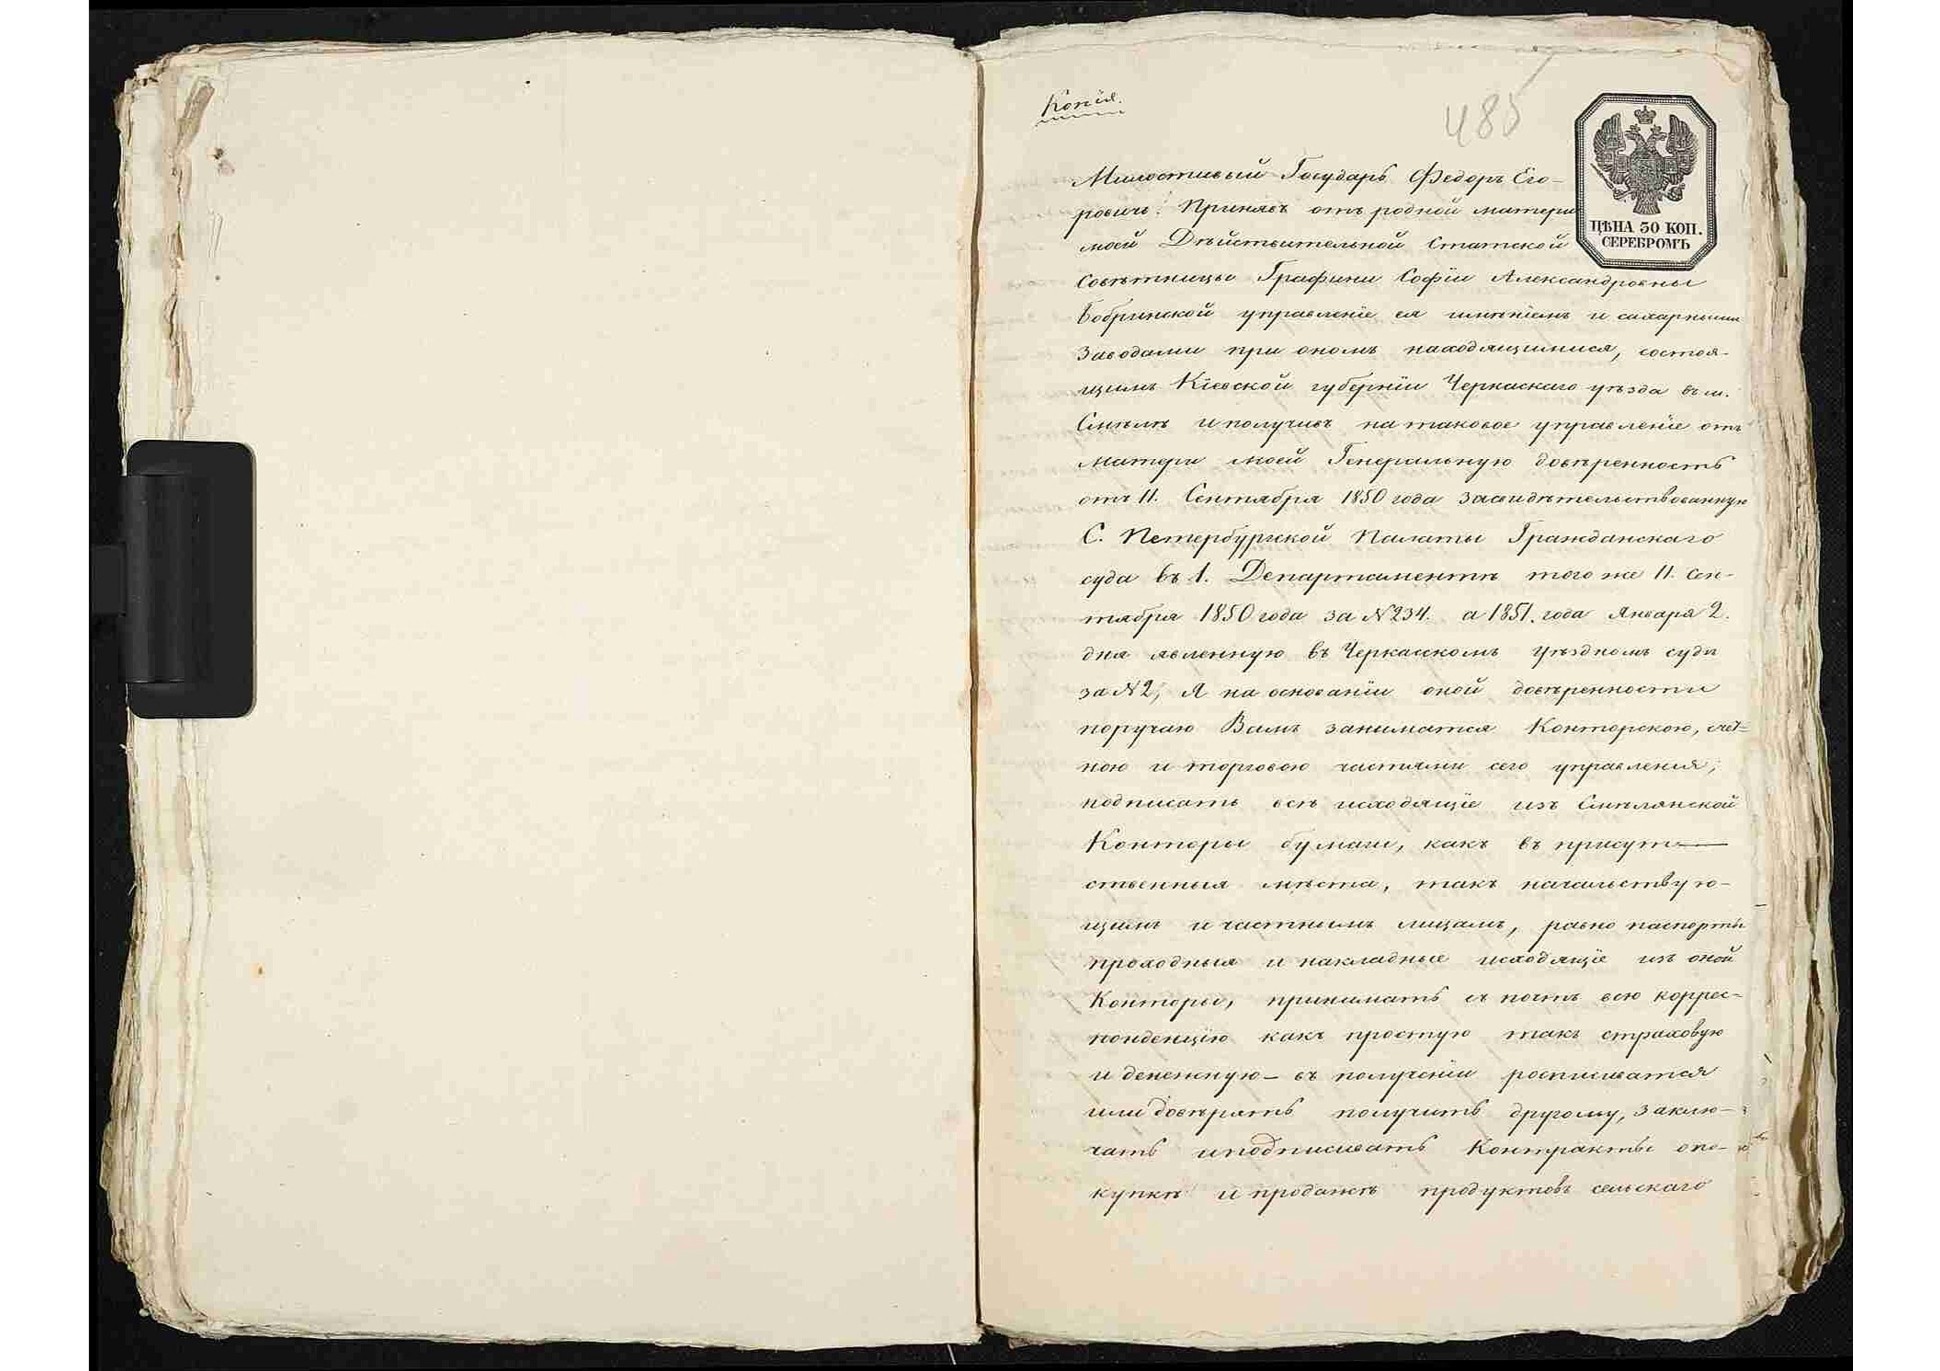 Копія.
485
ЦѢНА 30 КОП.
СЕРЕБРОМЪ
Милостивый Государь Федоръ Его-
ровичь! Принявъ отъ родной матери
моей Дѣйствительной Статской
Совѣтницы Графини Софіи Александровны
Бобринской управленіе ея имѣніемъ и сахарными
заводами при ономъ находящимися, состоя-
щимъ Кіевской губерніи Черкаскаго уѣзда въ м.
Смѣлѣ и получивъ на таковое управленіе отъ
матери моей Генеральную довѣренность
отъ 11. Сентября 1850 года засвидѣтельствованную
С. Петербургской Палаты Гражданскаго
суда въ 1. Департаментѣ того же 11. Сен-
тября 1850 года за № 234. а 1851. года Января 2.
дня явленную въ Черкасскомъ уѣздномъ судѣ
за № 2, Я на основаніи оной довѣренности
поручаю Вамъ заниматся Конторскою, счет-
ною и торговою частями сего управленія,
подписать всѣ исходящіе изъ Смѣлянской
Конторы бумаги, какъ въ присут-
ственныя мѣста, такъ начальствую-
щимъ и частнымъ лицамъ, равно паспорты
проходныя и накладные исходящіе изъ оной
Конторы, принимать съ почтъ всю коррес-
понденцію какъ простую такъ страховую
и денежную — въ полученіи росписыватся
или довѣрять получить другому, заклю-
чать и подписывать Контракты о по-
купкѣ и продажѣ продуктовъ сельскаго